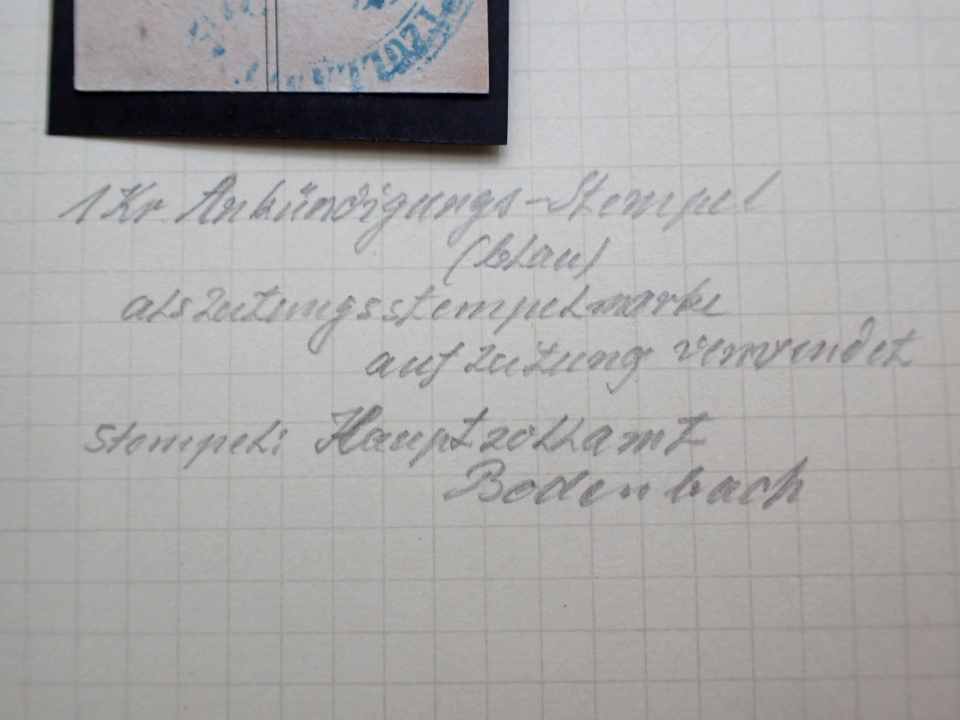 1 Kr Ankündigungs-Stempel
(blau)
als Zeitungsstempelmarke
auf Zeitung verwendet
Stempel: Hauptzollamt
Bodenbach